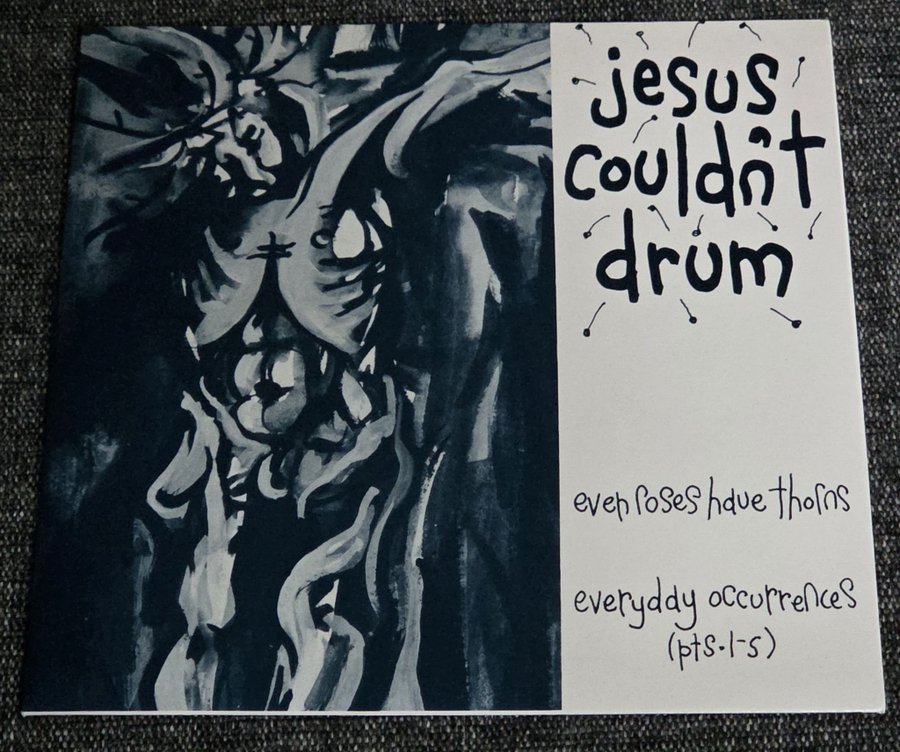 jesus
couldn't
drum
even roses have thorns
everyday occurrences
(pts.1-5)